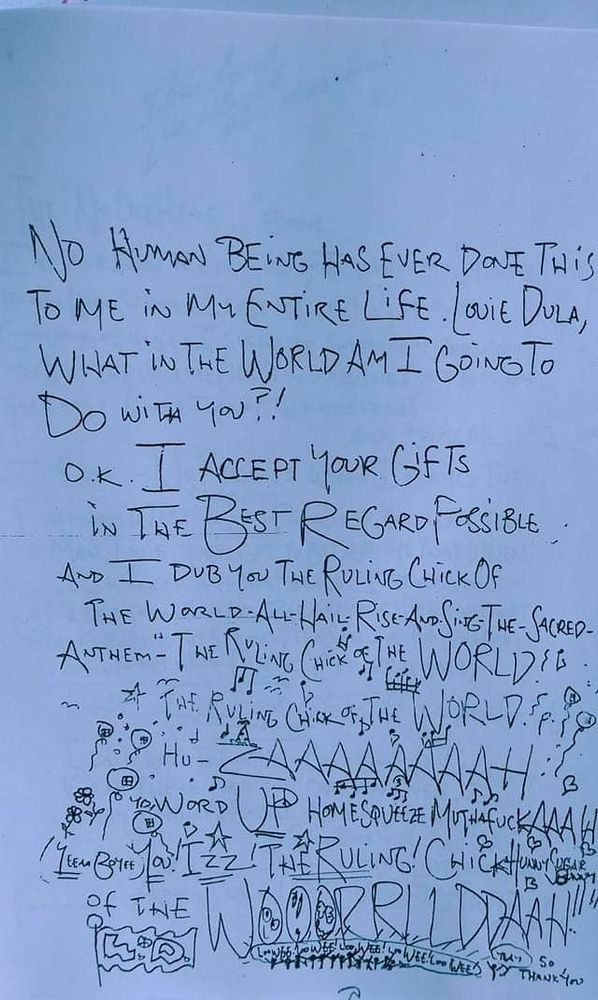 No Human Being Has Ever Done This
To Me in My Entire Life. Louie Dula,
What in The World Am I Going To
Do with you?!
O.K. I Accept Your Gifts
in The Best Regard Possible.
And I Dub You The Ruling Chick Of
The World-All-Hail-Rise-And-Sing-The-Sacred-
Anthem-"The Ruling Chick of The World!
The Ruling Chick of The World!
Hu-ZAAAAAAAH!
Yo Word Up Homesqueeze MuthafuckAAAH
You! Izz! The Ruling! Chick Hunny Sugar
of the WOOORRLLDDAAH!!!
L D
So
Thank You